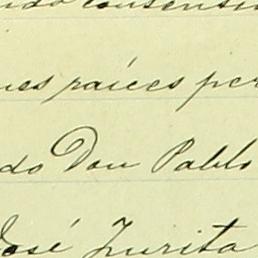 ido consenti
ues raíces per
do Don Pablo
José Zurita